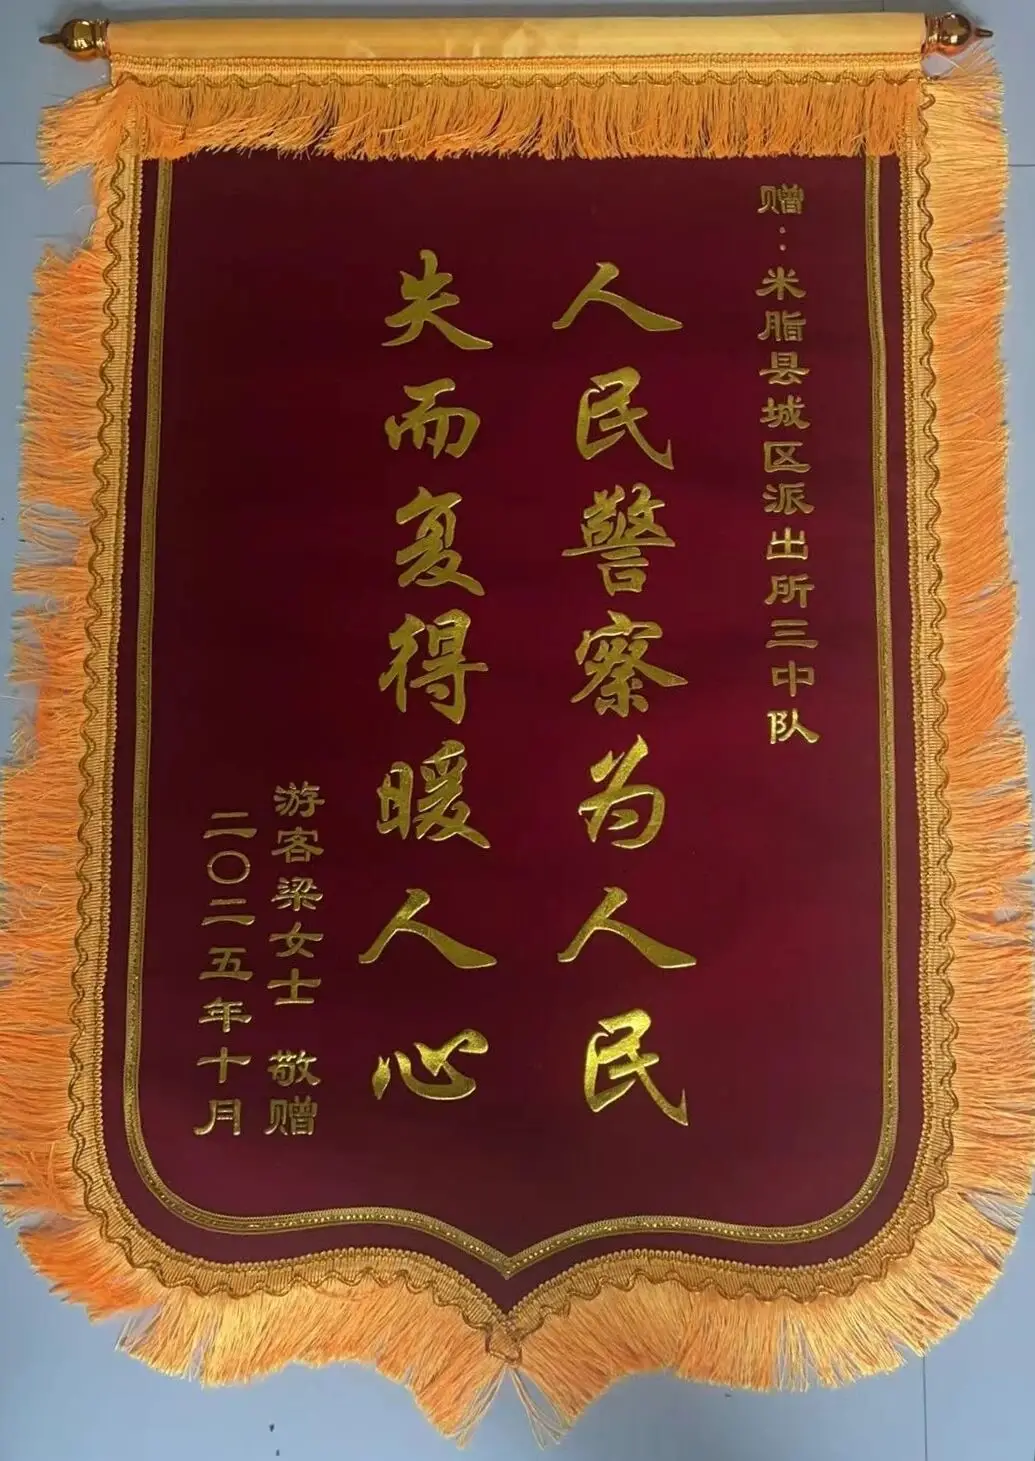 赠：米脂县城区派出所三中队
人民警察为人民
失而复得暖人心
游客梁女士 敬赠
二〇二五年十月